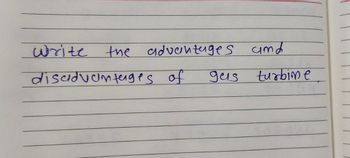 write the advantages and
disadvantages of gas turbine.